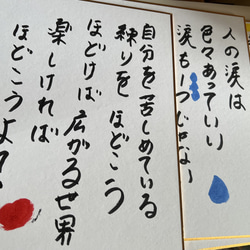 人の涙は
色々あっていい
涙も一つじゃない
自分を苦しめている
練りをほどこう
ほどけば広がるせ界
楽しければ
ほどこうよ?